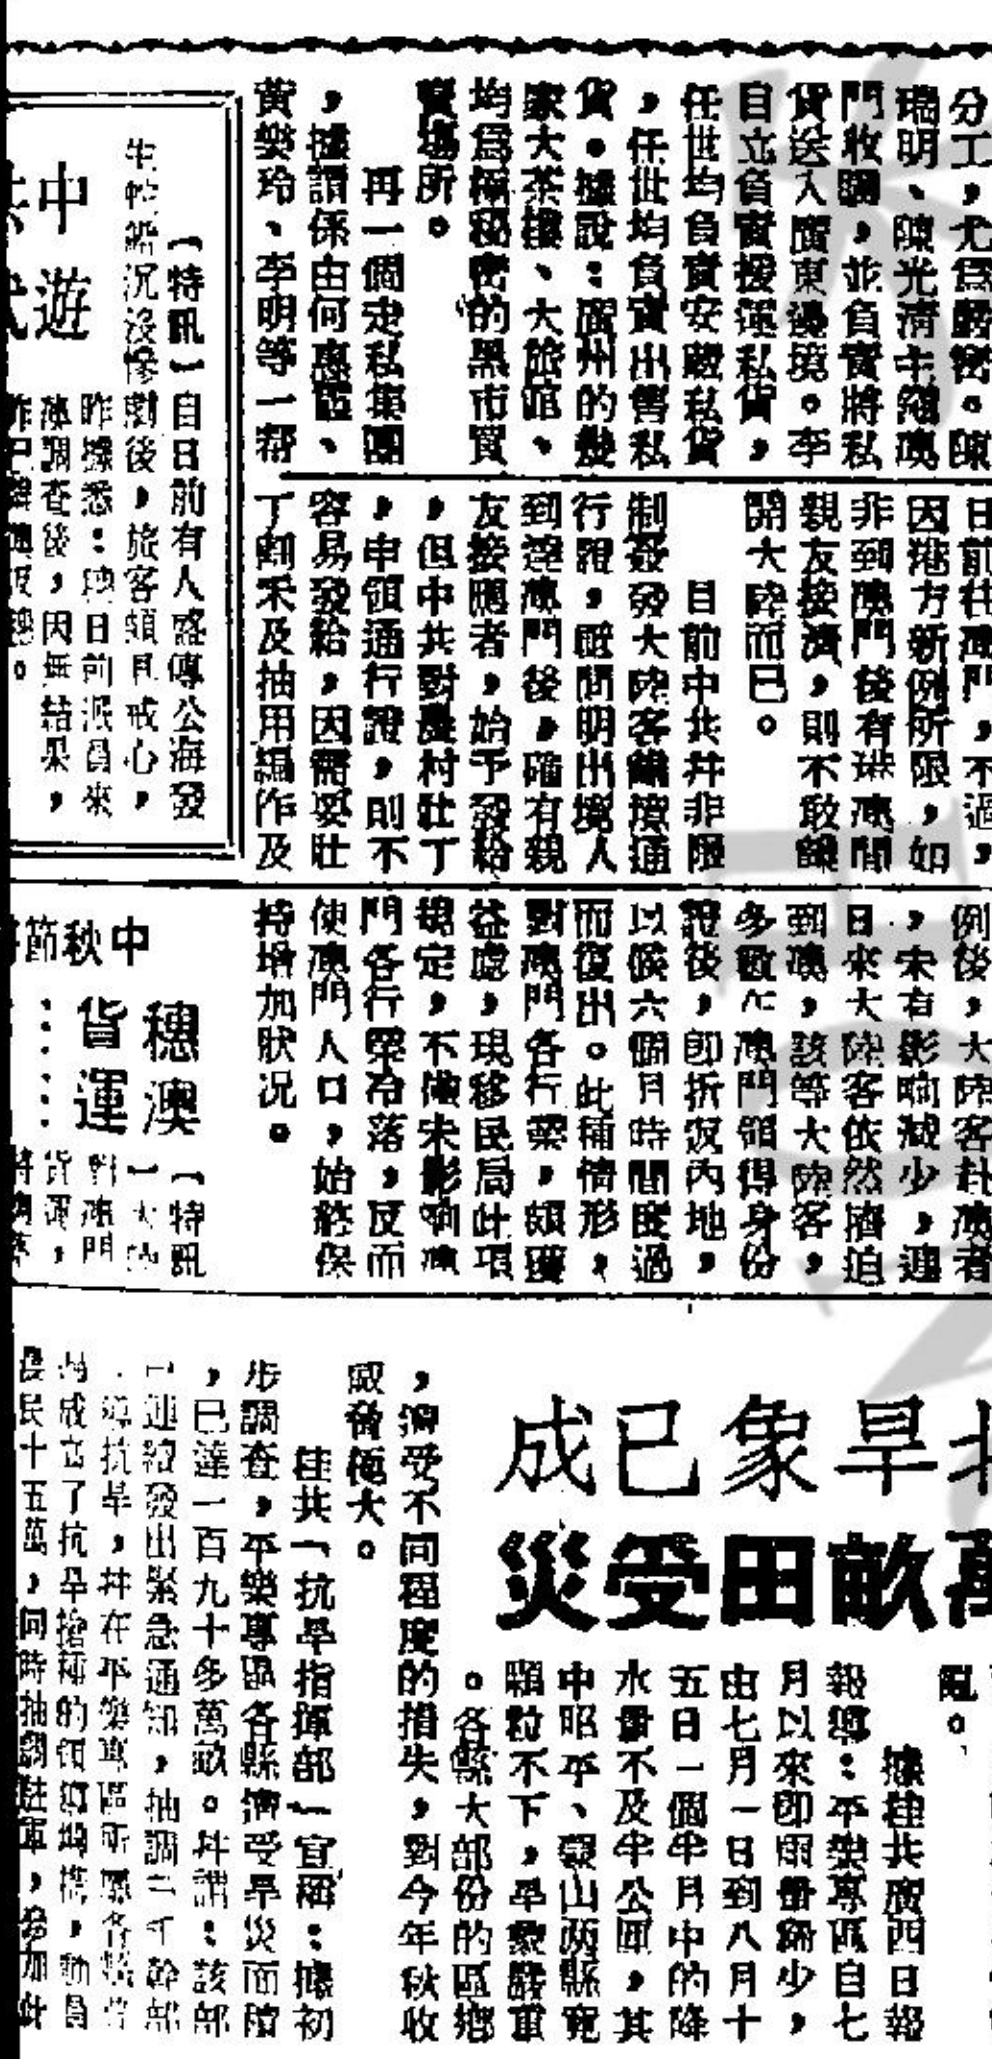 分工，尤爲嚴密。陳
瑞明、陳光清主理澳
門收購，並負責將私
貨送入廣東邊境。李
自立負責接運私貨，
任世均負責安藏私貨
，任世均負責出售私
貨。據說：廣州的幾
家大茶樓、大旅館、
均爲極秘密的黑市買
賣場所。
再一個走私集團
，據謂係由何惠藍、
黃樂玲、李明等一帮
日前往澳門，不過，
因港方新例所限，如
非到澳門後有港澳間
親友接濟，則不敢離
開大陸而已。
目前中共并非限
制簽發大陸客離境通
行證，既問明出境人
到達澳門後，確有親
友接應者，始予發給
，但中共對農村壯丁
，申領通行證，則不
容易發給，因需要壯
丁割禾及抽用編作及
例後，大陸客赴澳者
，未有影响減少，連
日來大陸客依然擠迫
到澳，該等大陸客，
多數在澳門領得身份
證後，即折返內地，
以俟六個月時間度過
而復出。此種情形，
對澳門各行業，頗獲
益處，現移民局此項
規定，不僅未影响澳
門各行業冷落，反而
使澳門人口，始終保
持增加狀况。
中游
【特訊】自日前有人盛傳公海發
生 船沉沒慘劇後，旅客頗具戒心，
昨據悉： 日前派員來
澳調查後，因無結果，
昨已離澳返穗。
中秋節
穗澳
貨運
【特訊】大陸
對澳門
貨運，
旱象已成
萬畝田受災
亂。
據桂共廣西日報
報導：平樂專區自七
月以來即雨量稀少，
由七月一日到八月十
五日一個半月中的降
水量不及半公厘，其
中昭平、蒙山两縣竟
顆粒不下，旱象嚴重
。各縣大部份的區鄉
，遭受不同程度的損失，對今年秋收
威脅極大。
桂共「抗旱指揮部」宣稱：據初
步調查，平樂專區各縣遭受旱災面積
，已達一百九十多萬畝。并謂：該部
已連續發出緊急通知，抽調二千幹部
導抗旱，并在平樂專區所屬各縣
成立了抗旱搶種的 ，動員
農民十五萬，同時抽調駐軍，參加